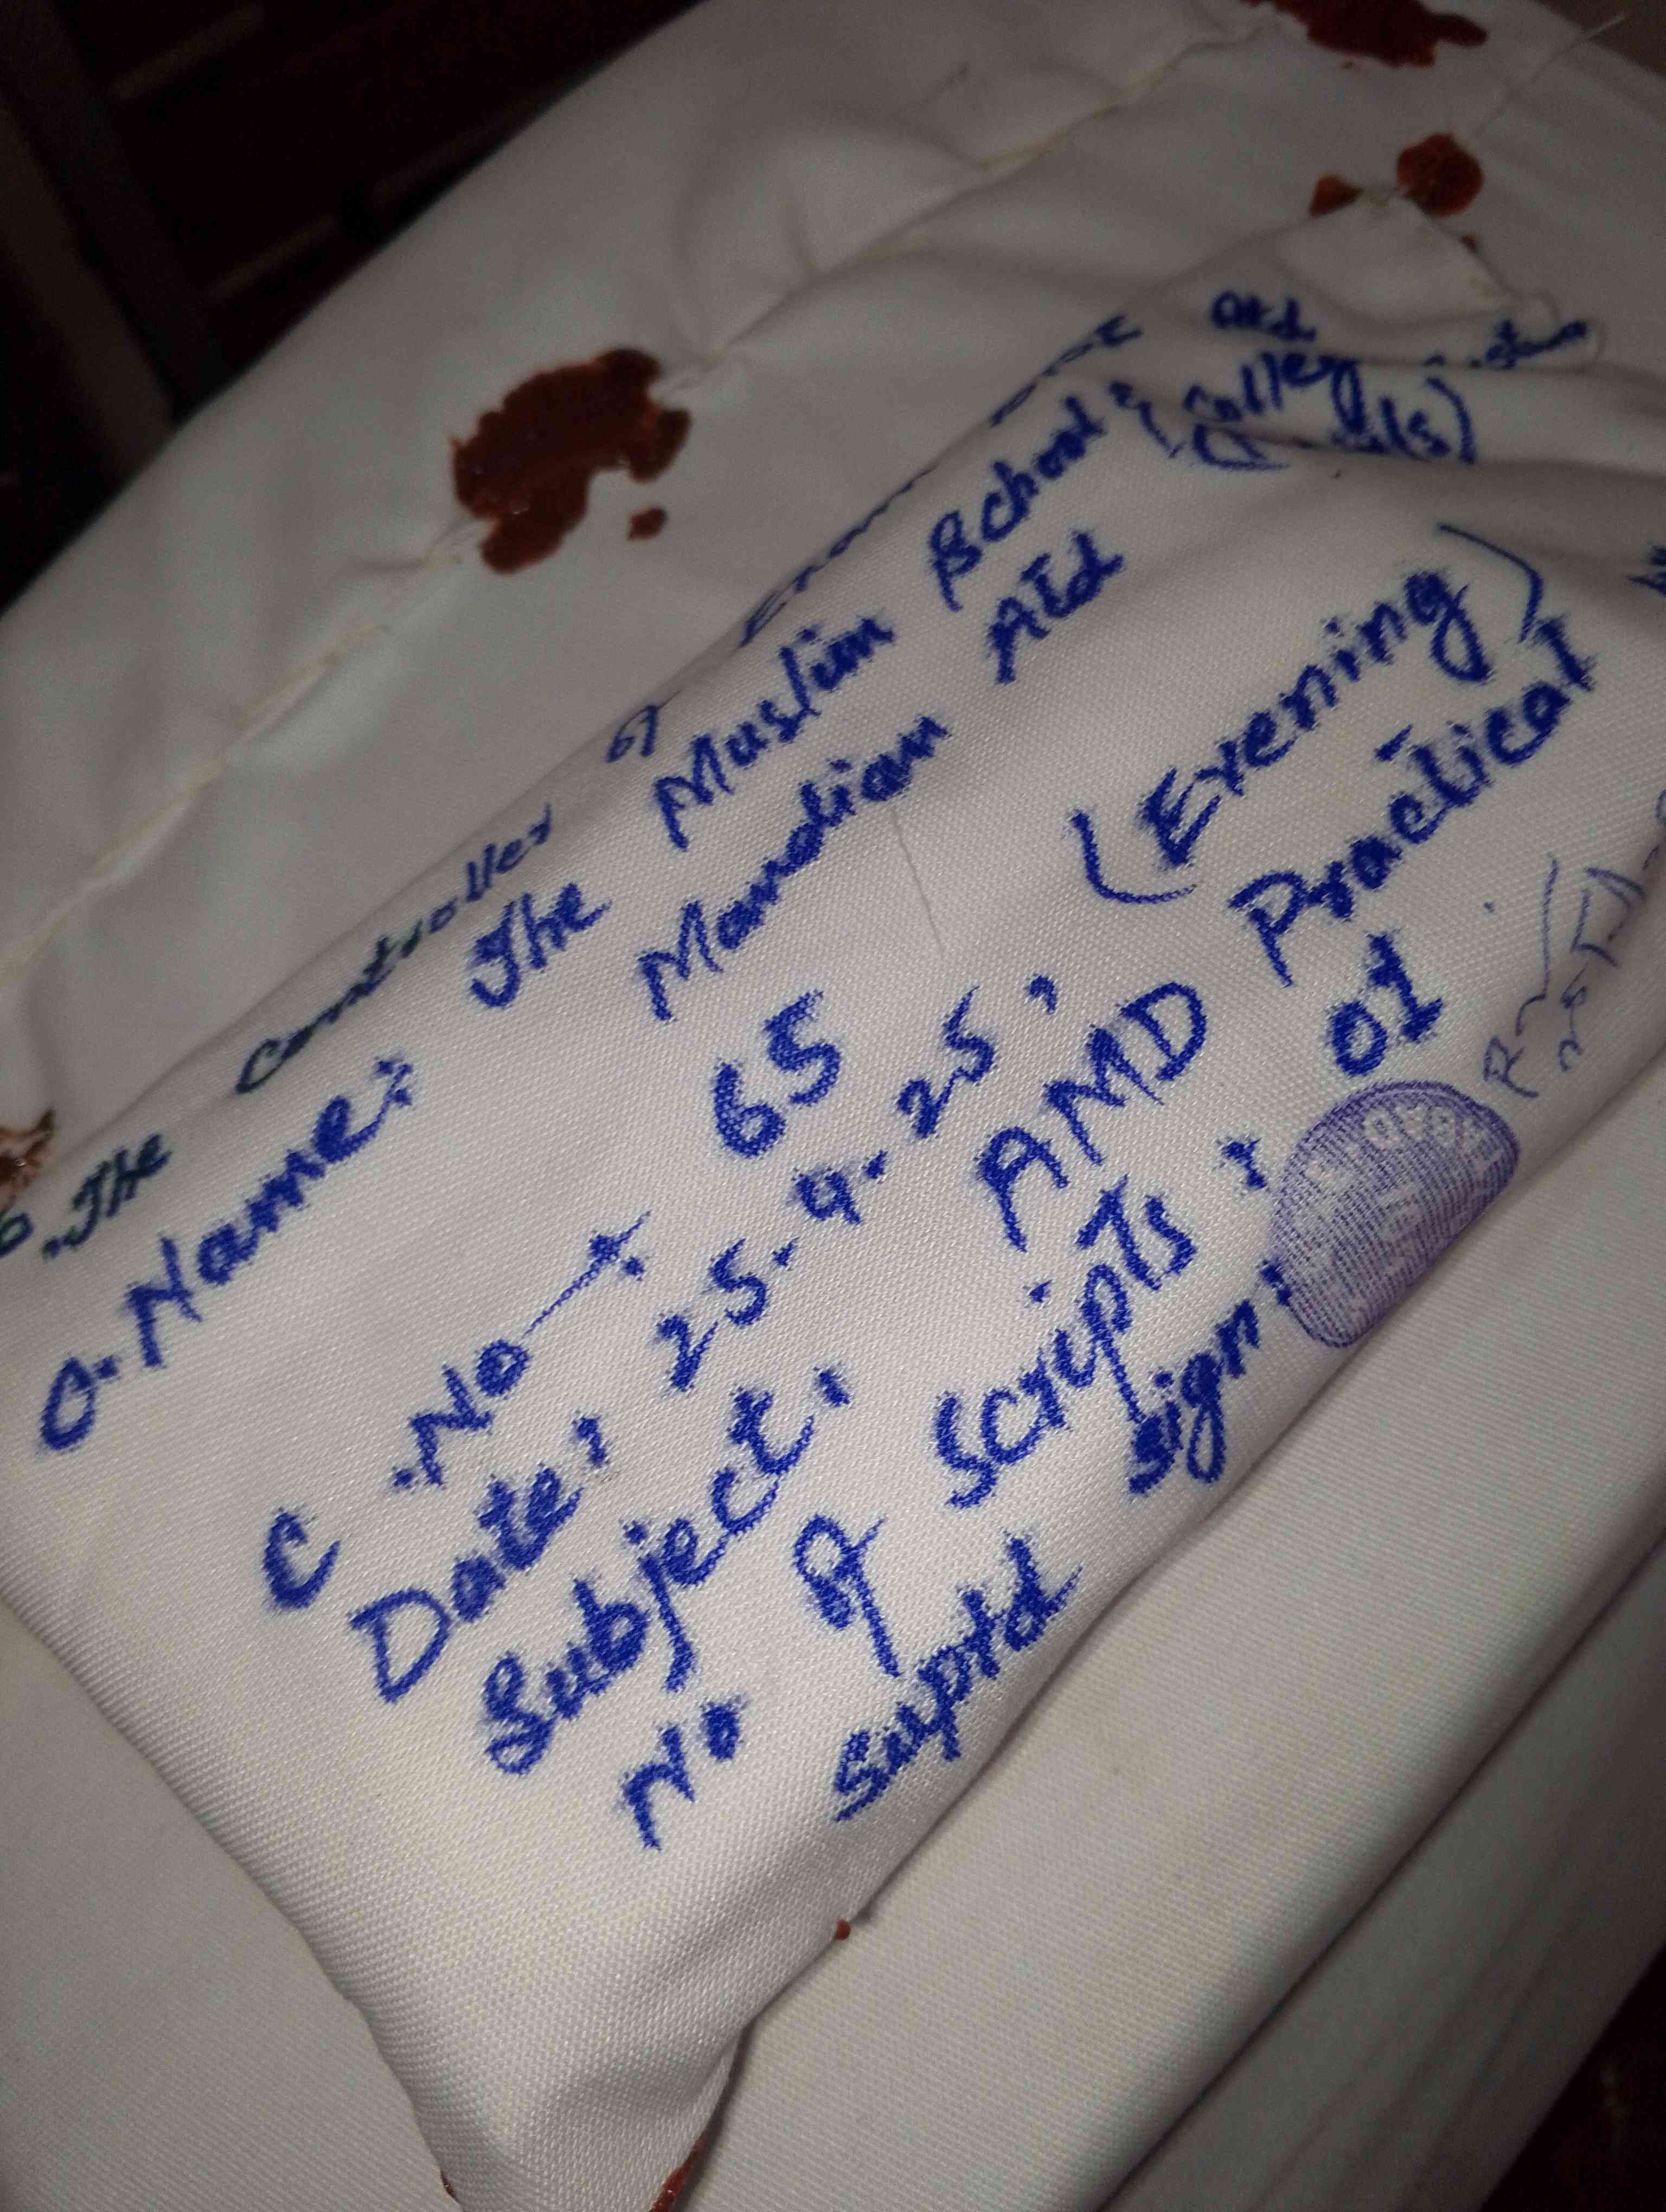 The Controller of Exam
C. Name: The Muslim School & College
Mandian Atd
C.No: 65
Date: 25.9.25, (Evening)
Subject: AMD Practical
No of Scripts: 01
Suptd Sign:
ABAD